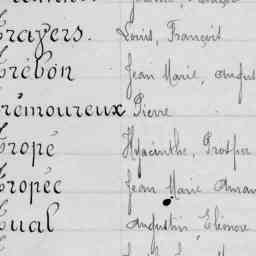 Trayers. Louis, François
Trébon Jean Marie, August
Trémoureux Pierre
Tropé Hyacinthe, Prosper
Tropée Jean Marie Aman
Tual Augustin, Eléonore